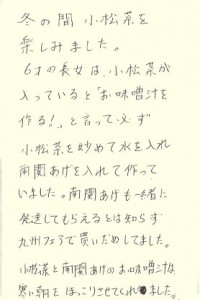 冬の間 小松菜を
楽しみました。
6才の長女は、小松菜が
入っていると「お味噌汁を
作る!」と言って必ず
小松菜を炒めて水を入れ
南関あげを入れて作って
いました。南関あげも一緒に
発送してもらえるとは知らず
九州フェアで買いだめしてました。
小松菜と南関あげのお味噌汁は
寒い朝をほっこりさせてくれました。